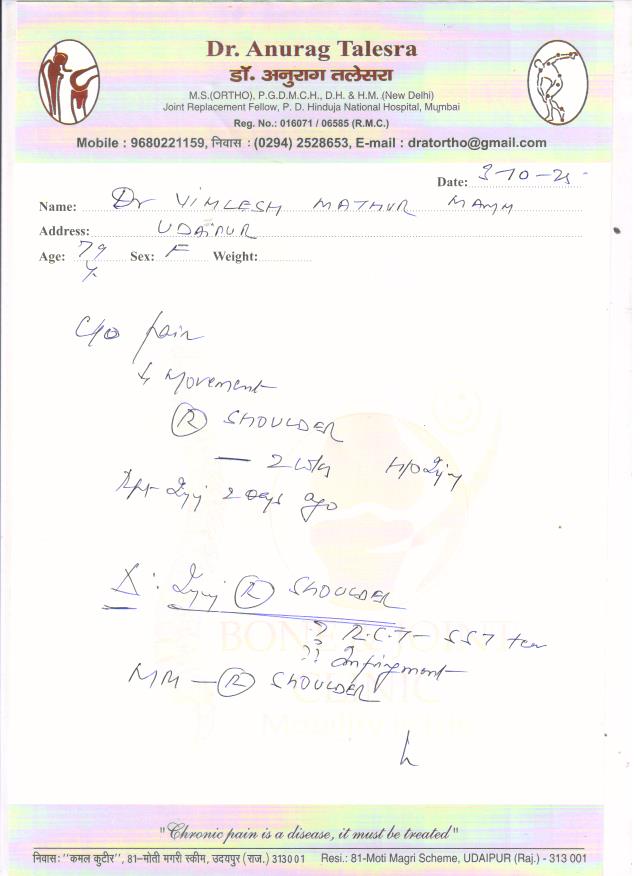 Dr. Anurag Talesra
डॉ. अनुराग तलेसरा
M.S.(ORTHO), P.G.D.M.C.H., D.H. & H.M. (New Delhi)
Joint Replacement Fellow, P. D. Hinduja National Hospital, Mumbai
Reg. No.: 016071 / 06585 (R.M.C.)
Mobile : 9680221159, निवास : (0294) 2528653, E-mail : dratortho@gmail.com
Date: 3-10-25
Name: Dr VIMLESH MATHUR MAMM
Address: UDAIPUR
Age: 79 Y Sex: F Weight:
C/O pain
↓ Movement
(R) SHOULDER
— 2 wks H/O Injy
Injy 2 Days ago
Injy (R) SHOULDER
? R.C.T - SST tear
??
BONE & JOINT
CLINIC
(R) SHOULDER
"Chronic pain is a disease, it must be treated"
निवास: "कमल कुटीर", 81-मोती मगरी स्कीम, उदयपुर (राज.) 313001 Resi.: 81-Moti Magri Scheme, UDAIPUR (Raj.) - 313 001